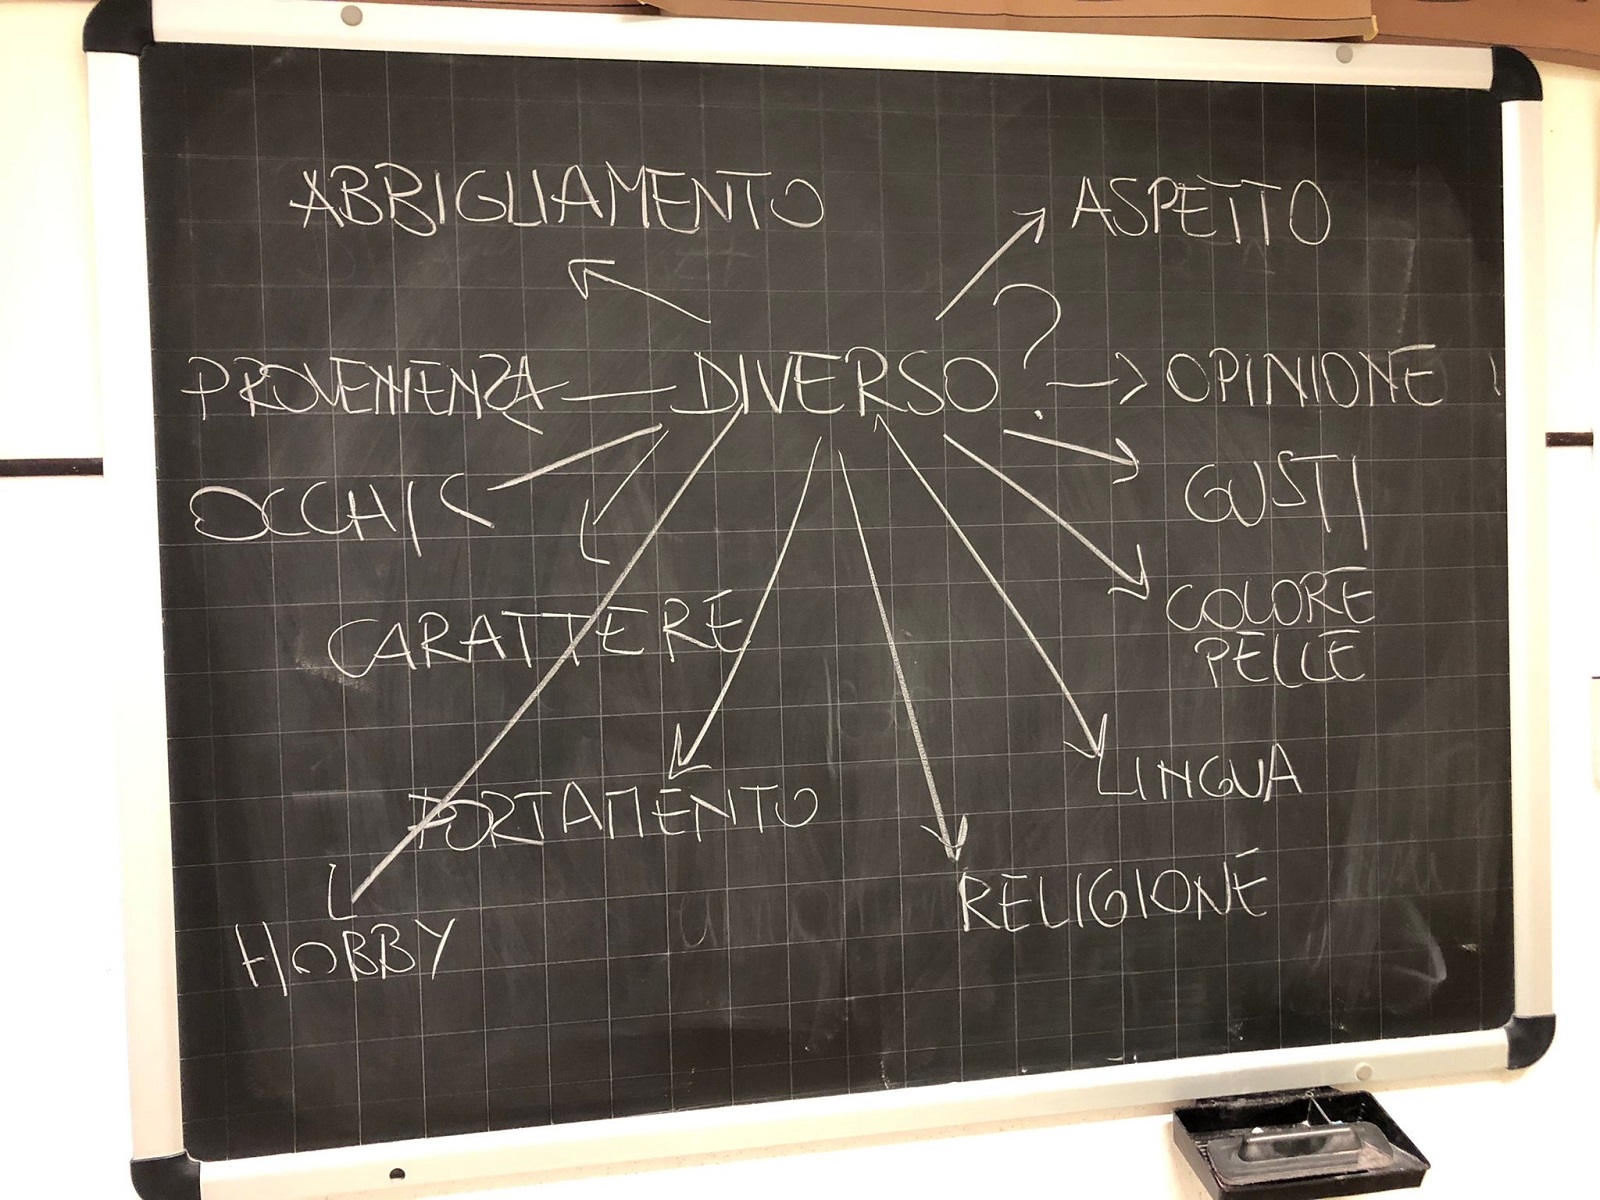 ABBIGLIAMENTO
ASPETTO
PROVENIENZA
DIVERSO?
OPINIONE
OCCHI
GUSTI
CARATTERE
COLORE
PELLE
PORTAMENTO
LINGUA
RELIGIONE
HOBBY